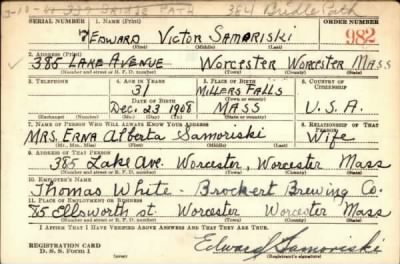 384 Bridle Path
SERIAL NUMBER 1. NAME (Print) ORDER NUMBER
7 EDWARD VICTOR SAMARISKI 982
(First) (Middle) (Last)
2. ADDRESS (Print)
385 LAKE AVENUE WORCESTER WORCESTER MASS
(Number and street or R. F. D. number) (Town) (County) (State)
3. TELEPHONE 4. AGE IN YEARS 5. PLACE OF BIRTH 6. COUNTRY OF CITIZENSHIP
31 MILLERS FALLS
(Town or county)
DATE OF BIRTH
DEC. 23 1908 MASS U.S.A.
(Exchange) (Number) (Mo.) (Day) (Yr.) (State or country)
7. NAME OF PERSON WHO WILL ALWAYS KNOW YOUR ADDRESS 8. RELATIONSHIP OF THAT PERSON
MRS. ERNA Alberta Samoriski Wife
(Mr., Mrs., Miss) (First) (Middle) (Last)
9. ADDRESS OF THAT PERSON
385 Lake Ave. Worcester, Worcester Mass
(Number and street or R. F. D. number) (Town) (County) (State)
10. EMPLOYER'S NAME
Thomas White - Brockert Brewing Co.
11. PLACE OF EMPLOYMENT OR BUSINESS
85 Ellsworth st. Worcester Worcester Mass
(Number and street or R. F. D. number) (Town) (County) (State)
I AFFIRM THAT I HAVE VERIFIED ABOVE ANSWERS AND THAT THEY ARE TRUE.
REGISTRATION CARD
D. S. S. Form 1
Edward Samoriski
(Registrant's signature)